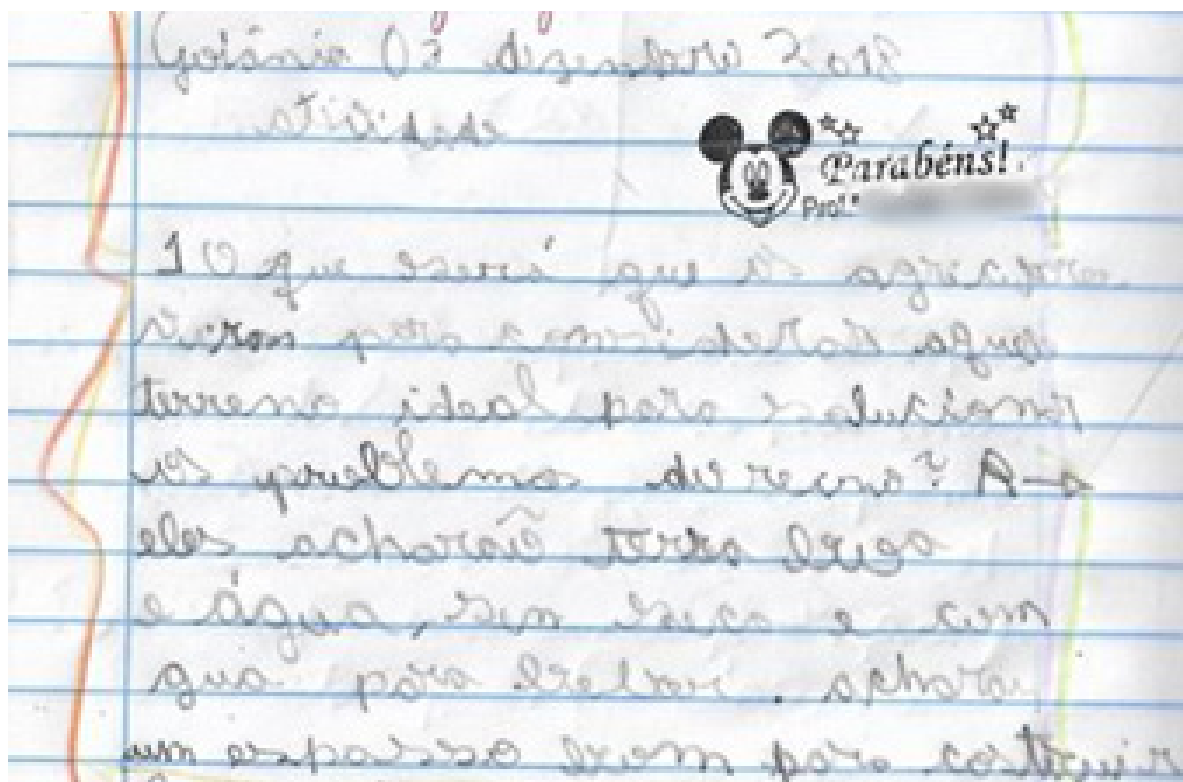 Goiânia 03 dezembro 2018
atividade
Parabéns!
Prof.ª
1 O que será que os agricultora
viram para considerar aquele
terreno ideal para solucionar
os problemas de reino? R→
eles acharaõ terra boa
e água, sem seca e com
gua para beber. acharã
um espasso bom para costruir